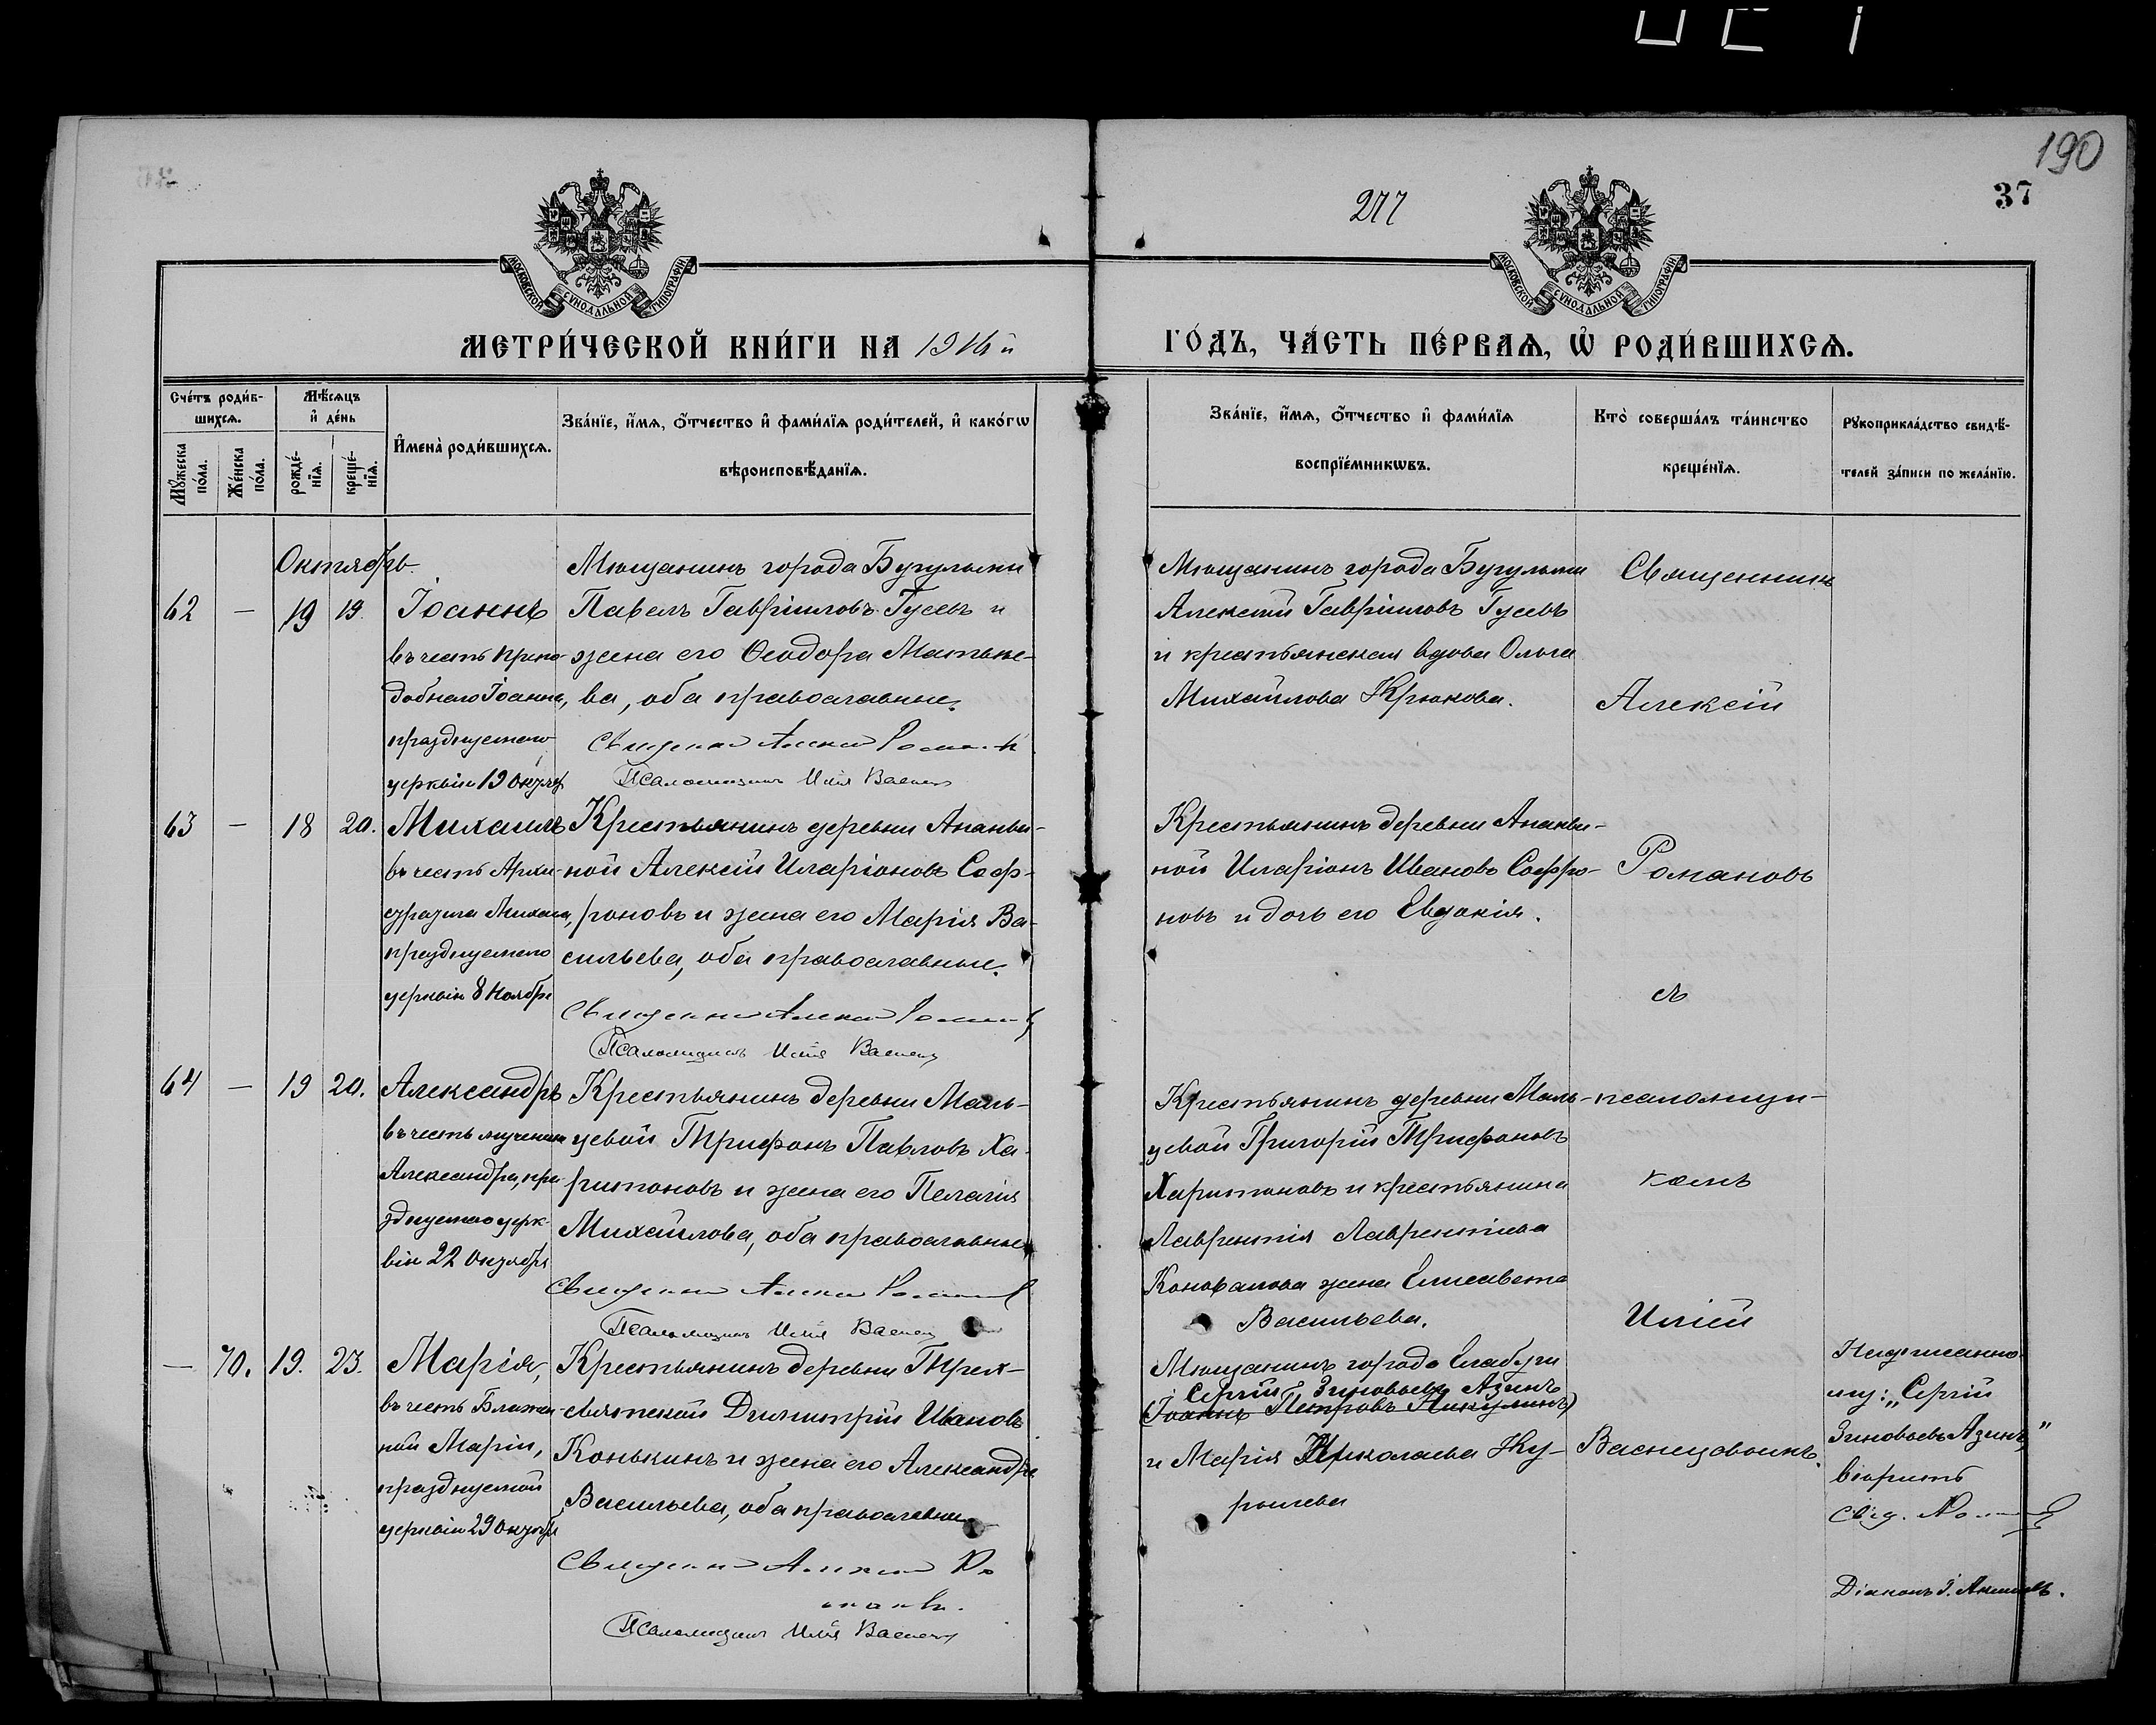 190
277
37
МОСКОВСКОЙ СѴНОДАЛЬНОЙ ТИПОГРАФІИ
МОСКОВСКОЙ СѴНОДАЛЬНОЙ ТИПОГРАФІИ
МЕТРИ́ЧЕСКОЙ КНИ́ГИ НА 1916 й
ГО́ДЪ, ЧА́СТЬ ПЕ́РВАѦ, Ѡ҆ РОДИ́ВШИХСѦ.
Сче́тъ роди́в-
шихсѧ.
Мꙋ́жеска
по́ла.
Же́нска
по́ла.
Мѣ́сѧцъ
и҆ де́нь
рожде́-
нїѧ.
креще́-
нїѧ.
И҆мена̀ роди́вшихсѧ.
Зва́нїе, и҆́мѧ, ѻ҆́тчество и҆ фами́лїѧ роди́телей, и҆ како́гѡ
вѣроисповѣ́данїѧ.
Зва́нїе, и҆́мѧ, ѻ҆́тчество и҆ фами́лїѧ
воспрїе́мникѡвъ.
Кто̀ соверша́лъ та́инство
креще́нїѧ.
Рꙋкоприкла́дство свидѣ́-
телей за́писи по жела́нїю.
Октябрь.
62 — 19 19. Іоаннъ
въ честь препо-
добнаго Іоанна,
празднуемаго
церковію 19 Октября
Мѣщанинъ города Бугульмы
Павелъ Гавріиловъ Гусевъ и
жена его Ѳеодора Матвѣе-
ва, оба православные.
Священникъ Алексій Романовъ
Псаломщикъ Илія Васнецовъ
Мѣщанинъ города Бугульмы
Алексій Гавріиловъ Гусевъ
и крестьянская вдова Ольга
Михайлова Крюкова.
Священникъ
Алексій
63 — 18 20. Михаилъ
въ честь Архи-
стратига Михаила,
празднуемаго
церковію 8 Ноября
Крестьянинъ деревни Ананьи-
ной Алексій Иларіоновъ Соф-
роновъ и жена его Марія Ва-
сильева, оба православные.
Священникъ Алексій Романовъ
Псаломщикъ Илія Васнецовъ
Крестьянинъ деревни Ананьи-
ной Иларіонъ Ивановъ Софро-
новъ и дочь его Евдокія.
Романовъ
съ
64 — 19 20. Александръ
въ честь мученика
Александра, пра-
зднуемаго церк-
вію 22 Октября
Крестьянинъ деревни Маль-
цевой Трифонъ Павловъ Ха-
ритоновъ и жена его Пелагія
Михайлова, оба православные
Священникъ Алексій Романовъ
Псаломщикъ Илія Васнецовъ
Крестьянинъ деревни Маль-
цевой Григорій Трифоновъ
Харитоновъ и крестьянина
Лаврентія Лаврентіева
Коновалова жена Елисавета
Васильева.
псаломщи-
комъ
Иліей
— 70. 19. 23. Марія,
въ честь Блажен-
ной Маріи,
празднуемой
церковію 29 Октября
Крестьянинъ деревни Трех-
святской Димитрій Ивановъ
Конькинъ и жена его Александра
Васильева, оба православные
Священникъ Алексій Ро-
мановъ.
Псаломщикъ Илія Васнецовъ
Мѣщанинъ города Елабуги
Сергій Зиновьевъ Азинъ
(Іоаннъ Петровъ Никулинъ)
и Марія Николаева Ку-
Васнецовымъ.
Надписанно-
му: „Сергій
Зиновьевъ Азинъ"
вѣрить
Свящ. Романовъ